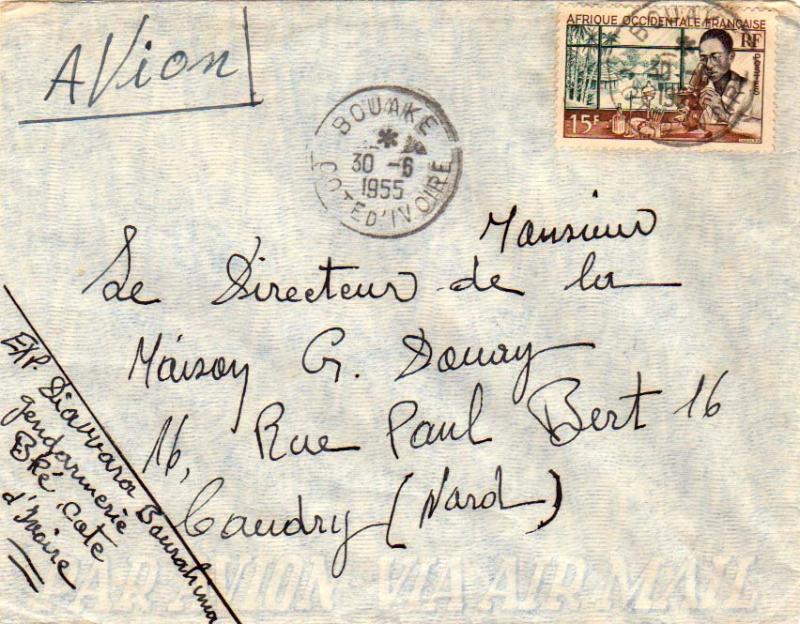 AVion
AFRIQUE OCCIDENTALE FRANÇAISE
RF
15F
BOUAKÉ
30 -6
1955
COTE D'IVOIRE
Monsieur
Le Directeur de la
Maison G. Douay
16, Rue Paul Bert 16
Caudry (Nord)
EXP. Diawara Bourahima
gendarmerie
BKé, Cote
d'Ivoire
PAR AVION VIA AIR MAIL